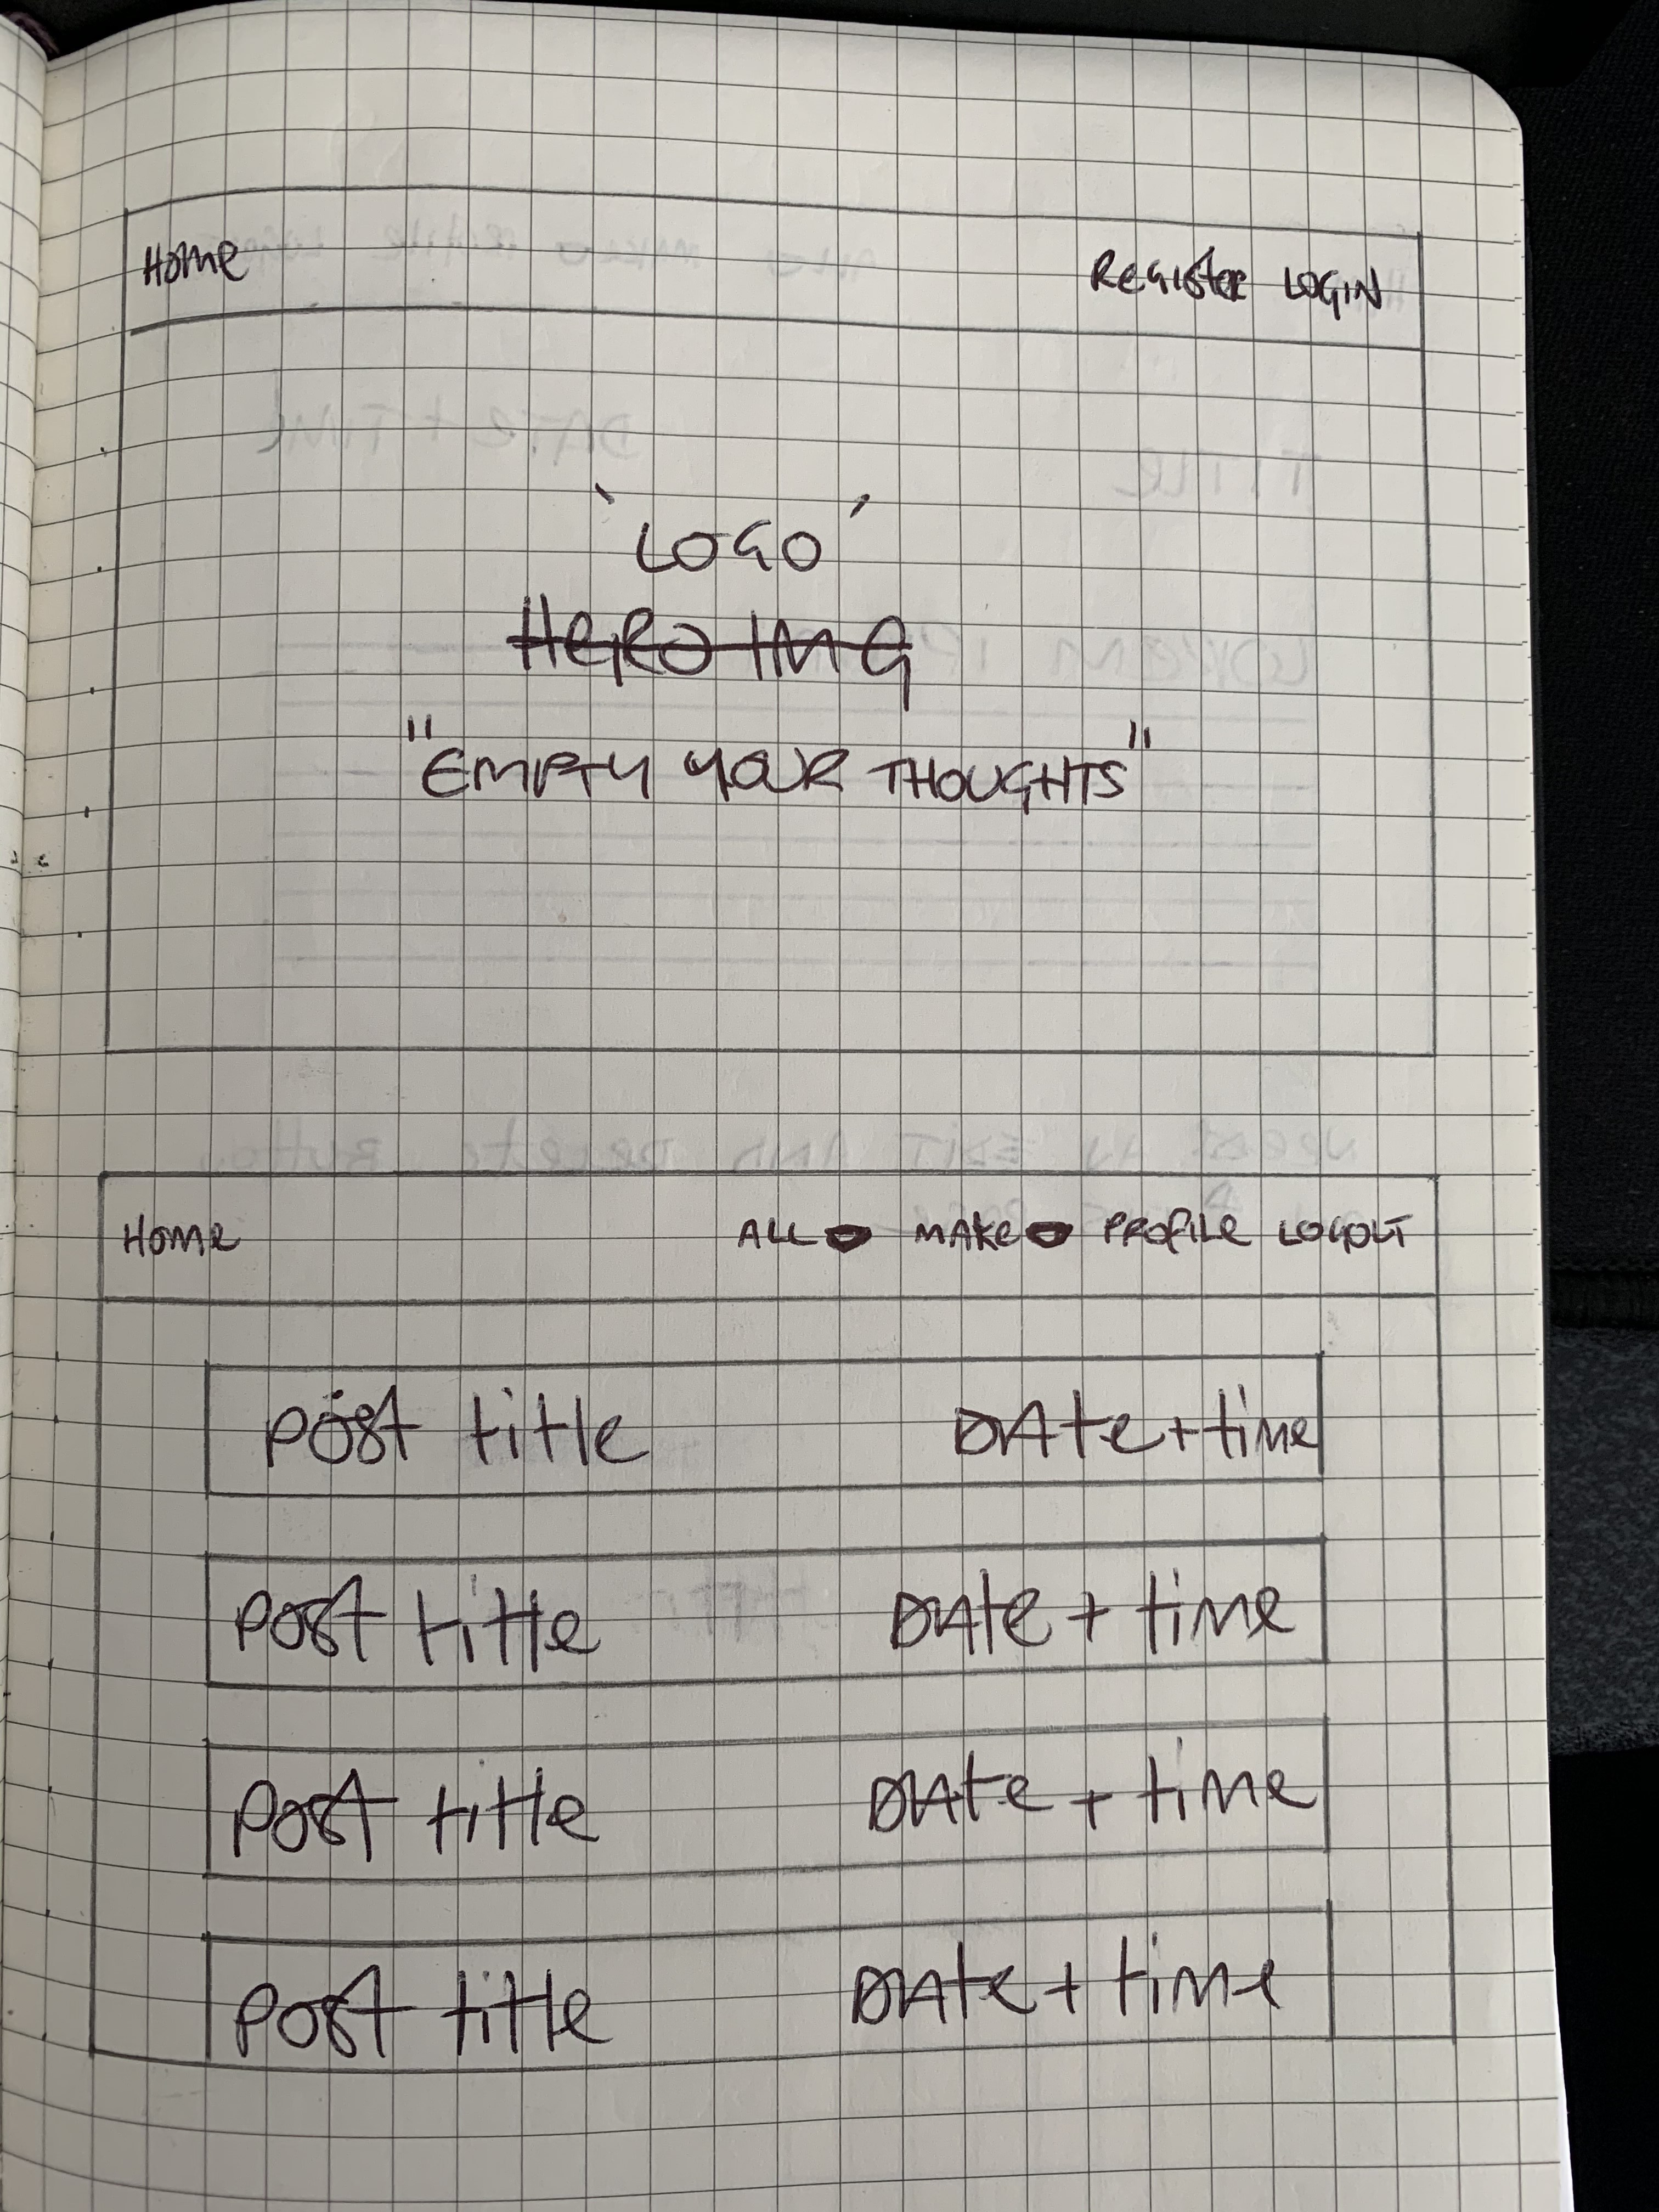 Home Register LOGIN
'LOGO'
HERO IMG
"EMPTY YOUR THOUGHTS"
Home ALL MAKE PROFILE LOGOUT
Post title DAte+time
Post title DAte + time
Post title DAte + time
Post title DAte + time